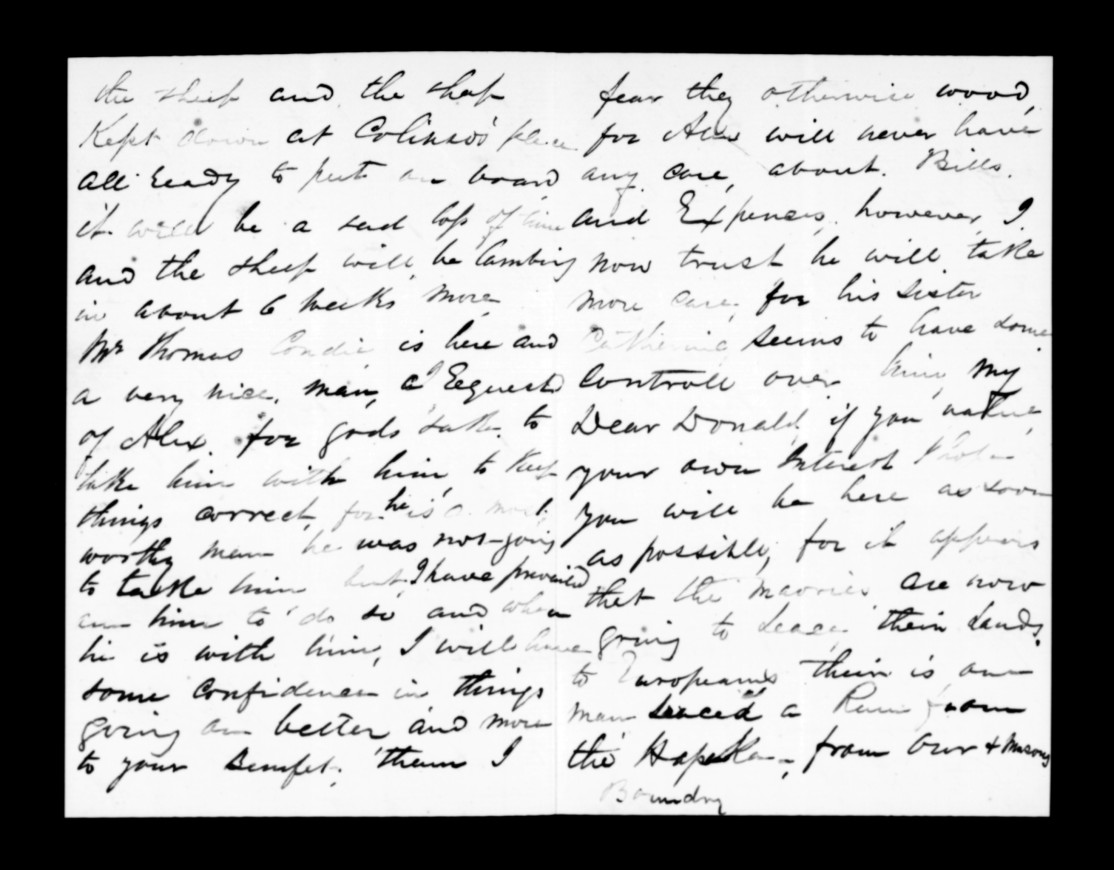 the sheep and the shep
Kept down at Colinso's place
all ready to put on board
it will be a sad loss of time
and the sheep will be lambing
in about 6 weeks more
Mr Thomas Condie is here and
a very nice man, I Request
of Alex for gods sake to
take him with him to keep
things correct, for he is a most
worthy man he was not going
to take him but I have prevailed
on him to do so and when
he is with him, I will have
some confidence in things
going on better and more
to your Benefet. then I
fear they otherwise wood,
for Alex will never have
any care, about. Bills.
and Expences, however, I
now trust he will take
more care, for his sister
Catherine seems to have some
controll over him, my
Dear Donald if you value
your own Interest I hope
you will be here as soon
as possible, for it appears
that the maories are now
going to Leace their Lands,
to Europeans their is one
man Leaced a Run from
the Hapuka, from our &
Boundry